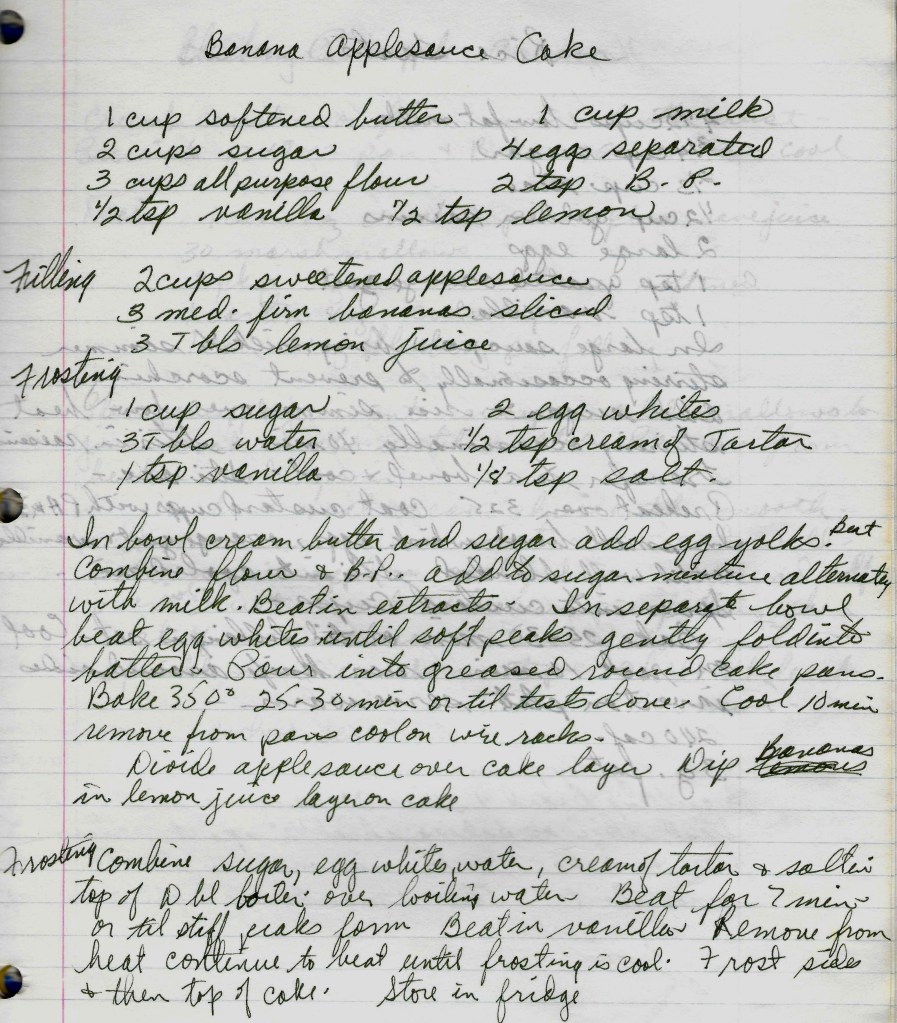 Banana Applesauce Cake
1 cup softened butter 1 cup milk
2 cups sugar 4 eggs separated
3 cups all purpose flour 2 tsp B.P.
1/2 tsp vanilla 1/2 tsp lemon
Filling 2 cups sweetened applesauce
3 med. firm bananas sliced
3 Tbls lemon juice
Frosting
1 cup sugar 2 egg whites
3 Tbls water 1/2 tsp cream of Tartar
1 tsp vanilla 1/8 tsp salt.
In bowl cream butter and sugar add egg yolks. Beat
Combine flour & B.P.. add to sugar mixture alternately
with milk. Beat in extracts. In separate bowl
beat egg whites until soft peaks gently fold into
batter. Pour into greased round cake pans.
Bake 350° 25-30 min or til tests done. Cool 10 min
remove from pans cool on wire racks.
Divide applesauce over cake layer. Dip Bananas
in lemon juice layer on cake
Frosting Combine sugar, egg whites, water, cream of tartar & salt in
top of Dbl boiler over boiling water Beat for 7 min
or til stiff peaks form Beat in vanilla Remove from
heat continue to beat until frosting is cool. Frost sides
& then top of cake. Store in fridge